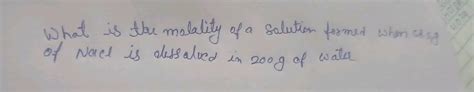 What is the molality of a solution formed when
of Nacl is dissolved in 200g of water